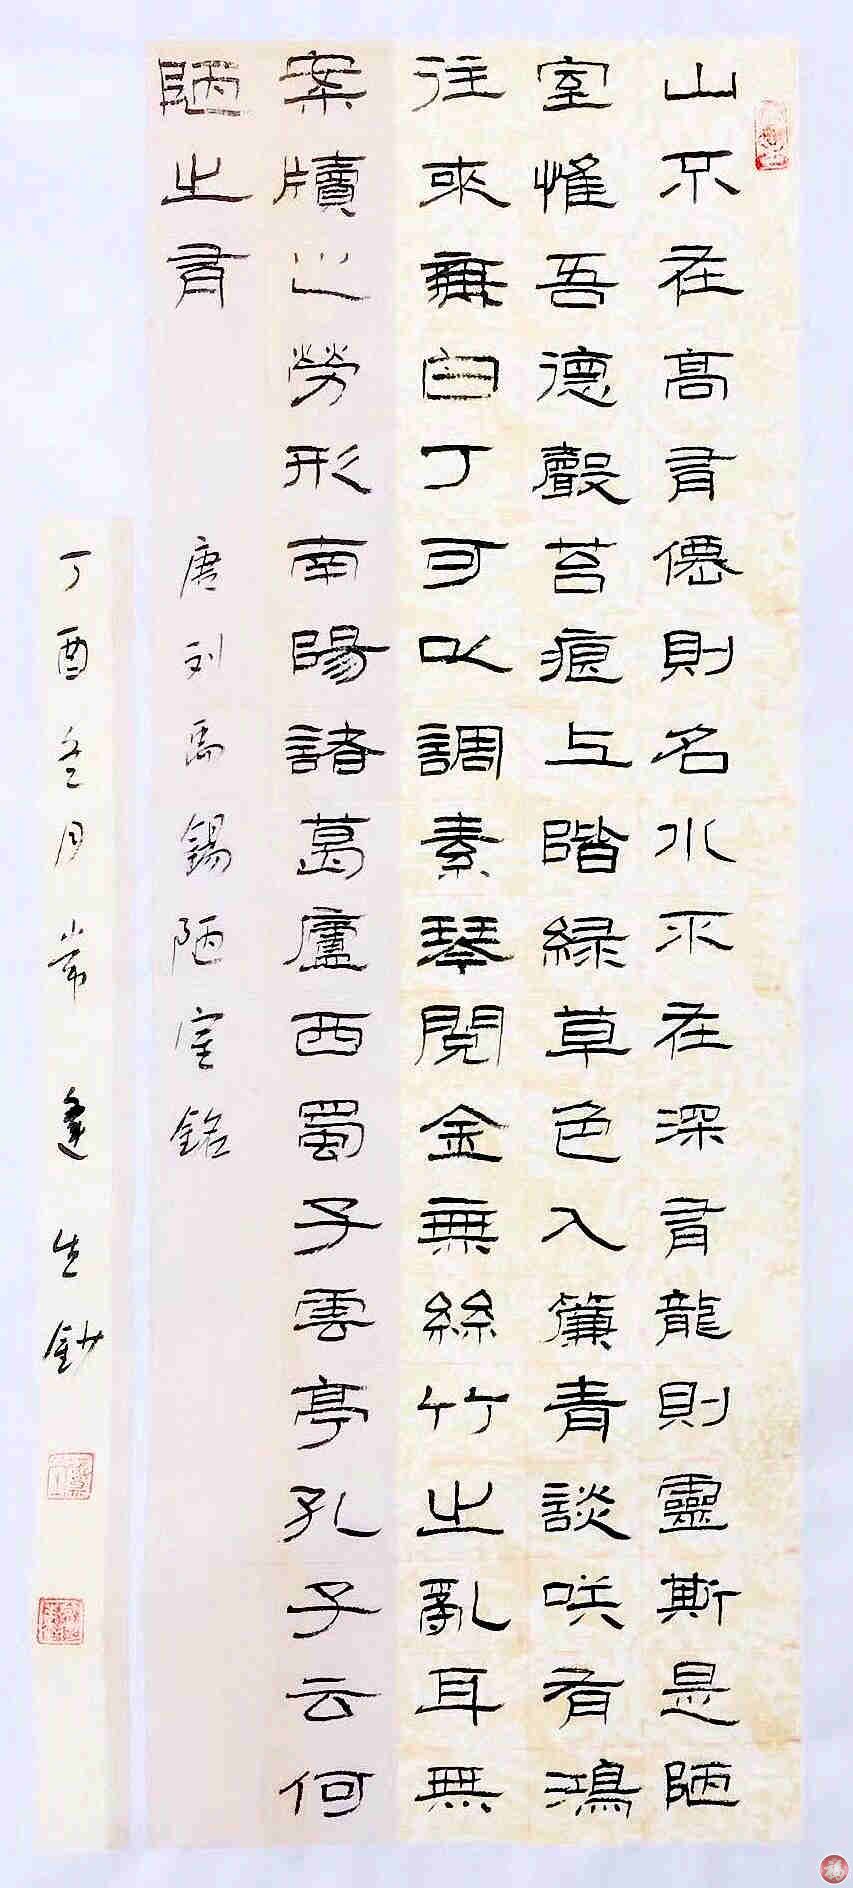 山不在高有僊則名水不在深有龍則靈斯是陋
室惟吾德馨苔痕上階緑草色入簾青談咲有鴻
往來無白丁可以調素琴閱金無絲竹之亂耳無
案牘之勞形南陽諸葛廬西蜀子雲亭孔子云何
陋之有
唐刘禹錫陋室銘
丁酉冬月常逢生鈔